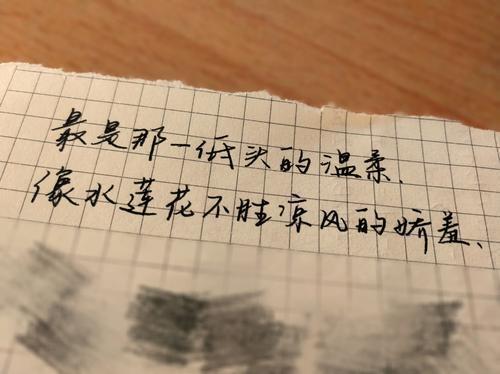 最是那一低头的温柔、
像水莲花不胜凉风的娇羞、